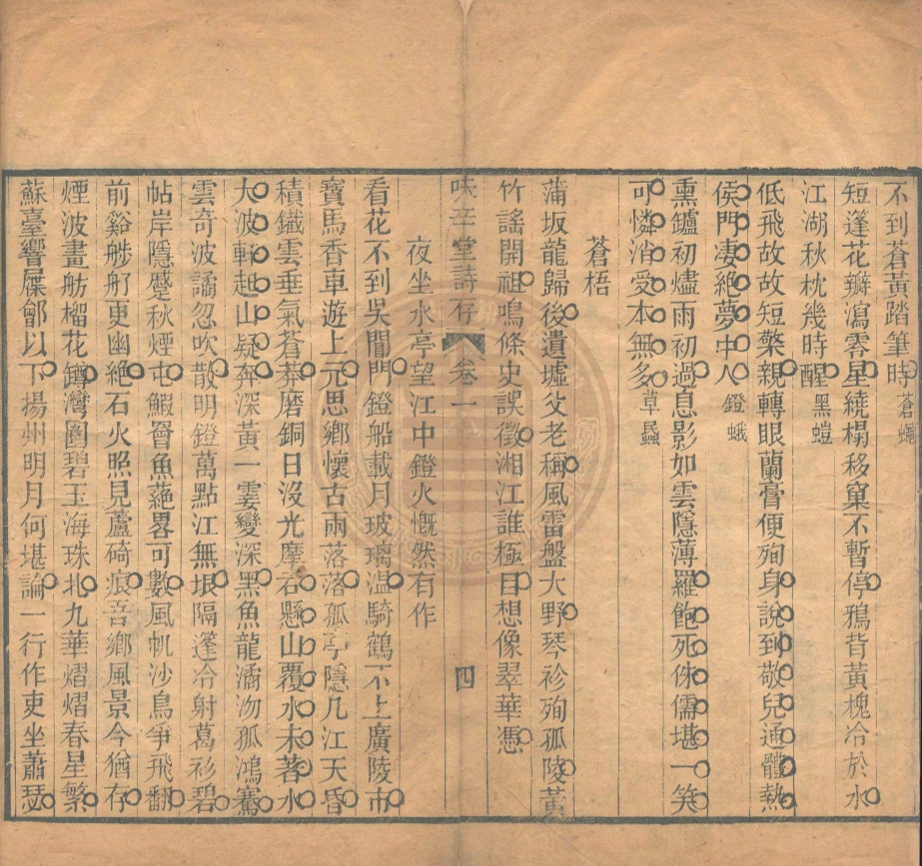 不到蒼黃踏筆時蒼蠅
短蓬花瓣瀉零星繞榻移窠不暫停鴉背黃槐冷於水
江湖秋枕幾時醒黑螘
低飛故故短檠親轉眼蘭膏便殉身說到敬兒通體熱
侯門淒絕夢中人鐙蛾
熏鑪初燼雨初過息影如雲隱薄羅飽死侏儒堪一笑
可憐消受本無多草蟲
蒼梧
蒲坂龍歸後遺墟父老稱風雷盤大野琴衫殉孤陵黃
竹謠開祖鳴條史誤徵湘江誰極目想像翠華憑
味辛堂詩存 卷一 四
夜坐水亭望江中鐙火慨然有作
看花不到吳閶門鐙船載月玻璃温騎鶴不上廣陵市
寶馬香車遊上元思鄉懷古兩落落孤亭隱几江天昏
積鐵雲垂氣蒼莽磨銅日沒光摩石懸山覆水未著水
大波軒起山疑奔深黃一霎變深黑魚龍潏沕孤鴻騫
雲奇波譎忽吹散明鐙萬點江無垠隔蓬冷射葛衫碧
帖岸隱蹙秋煙屯鰕罾魚蕝畧可數風帆沙鳥爭飛翻
前谿艄舸更幽絕石火照見蘆碕痕吾鄉風景今猶存
煙波畫舫榴花鐏灣圜碧玉海珠北九華熠熠春星繁
蘇臺響屧鄶以下揚州明月何堪論一行作吏坐蕭瑟